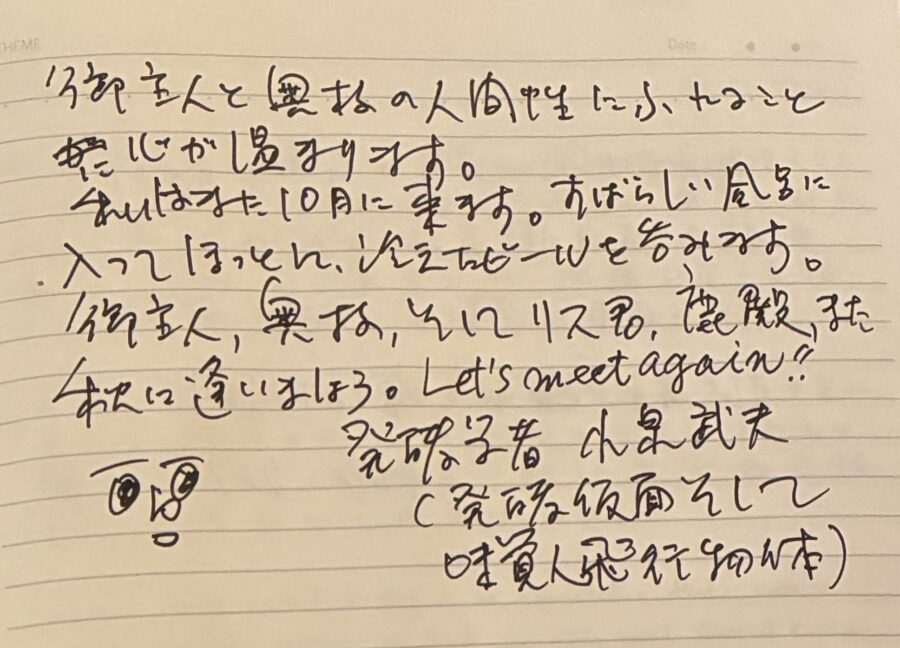 THEME Date
御主人と奥様の人間性にふれること
常に心が温まります。
私はまた10月に来ます。すばらしい風呂に
入ってほっとし、冷えたビールを呑みます。
御主人,奥様,そしてリス君,鹿殿,また
秋に逢いましょう。Let's meet again!!
発酵学者 小泉武夫
(発酵仮面そして
味覚人飛行物体)